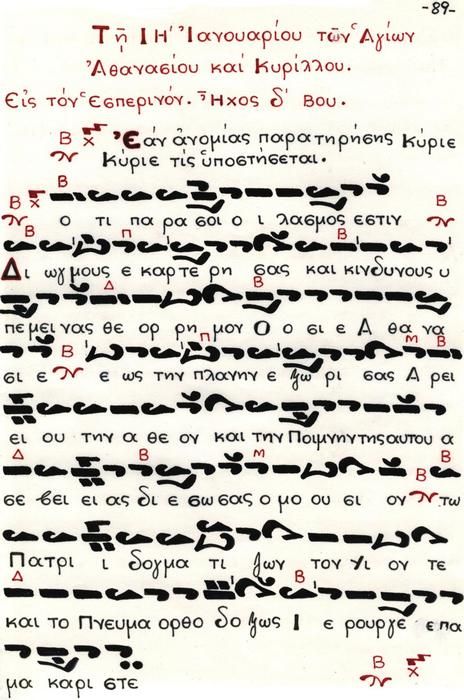 -89-
Τῇ ΙΗ' Ἰανουαρίου τῶν Ἁγίων
Ἀθανασίου καί Κυρίλλου.
Εἰς τόν Ἑσπερινόν. Ἦχος δ' Βου.
Ἐάν ἀνομίας παρατηρήσης Κύριε
Κύριε τίς ὑποστήσεται.
ο τι πα ρα σοι ο ι λασμος εστιν
Δι ωγ μους ε καρ τε ρη σας και κινδυνους υ
πε μει νας θε ορ ρη μον Ο ο σι ε Α θα να
σι ε ε ως την πλανην ε ξω ρι σας Α ρει
ει ου την α θε ον και την Ποιμνην της αυτου α
σε βει ει ας δι ε σω σας ο μο ου σι ον τω
Πατρι ι δογμα τι ζων τον Υι ον τε
και το Πνευμα ορθο δο ξως Ι ε ρουργε επα
μα καρι στε